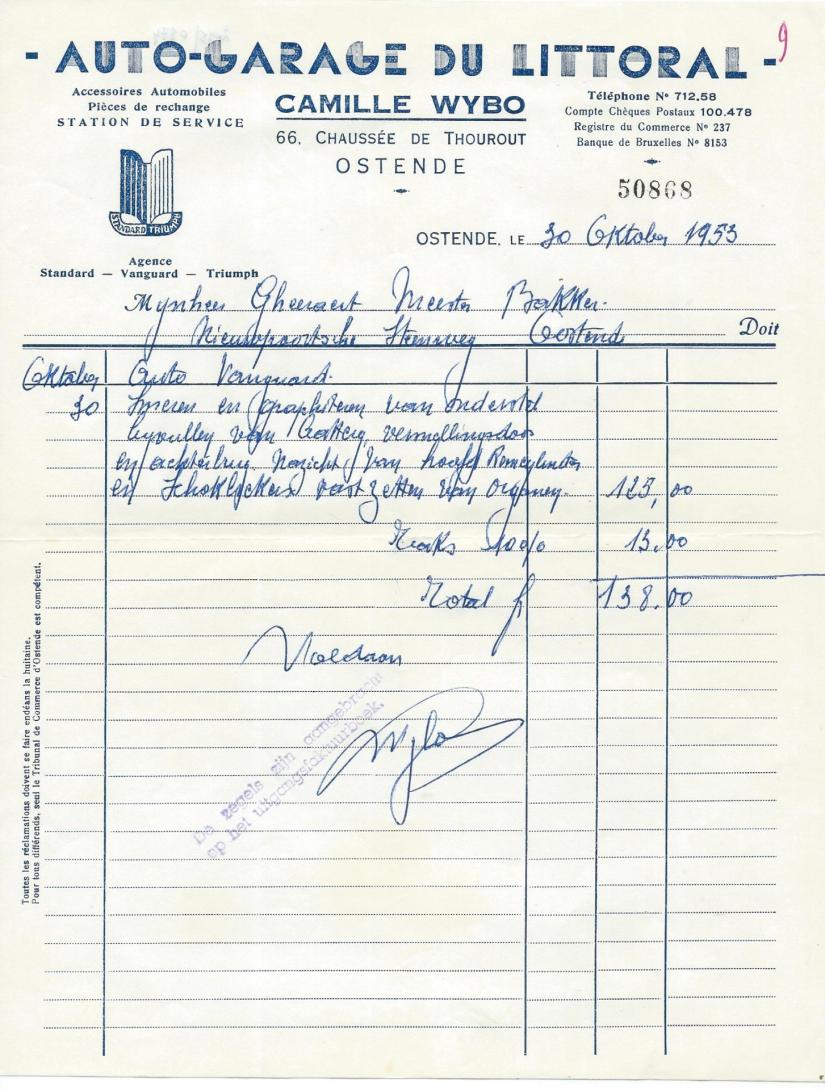 - AUTO-GARAGE DU LITTORAL -
9
Accessoires Automobiles
Pièces de rechange
STATION DE SERVICE
CAMILLE WYBO
66, CHAUSSÉE DE THOUROUT
OSTENDE
Téléphone Nº 712.58
Compte Chèques Postaux 100.478
Registre du Commerce Nº 237
Banque de Bruxelles Nº 8153
50868
STANDARD TRIUMPH
Agence
Standard — Vanguard — Triumph
OSTENDE, LE 30 Oktober 1953
Mynheer Gheeraert Meester Bakker.
Nieuwpoortsche Steenweg Oostende
Doit
Oktober Auto Vanguard.
30 Smeren en graphiteren van onderstel
van Battery, versnellingsdoos
en achterbrug Nazicht van hoofd Remcylinder
en Schokbrekers vast zetten van 125,00
Taks 10 0/0 13.00
Total fr 138.00
Voldaan
Wybo
De zegels zijn aangebracht
op het uitgangsfaktuurboek.
Toutes les réclamations doivent se faire endéans la huitaine.
Pour tous différends, seul le Tribunal de Commerce d'Ostende est compétent.